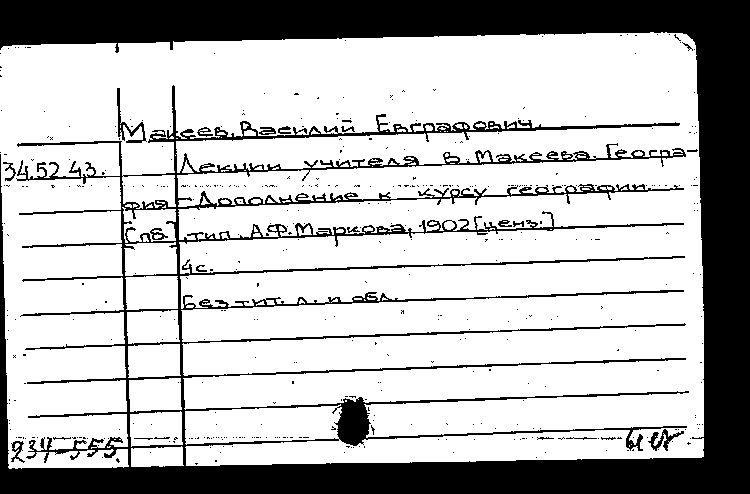 Макеев, Василий Евграфович.
34.52.4,3. Лекции учителя В. Макеева. Геогра-
фия - Дополнение к курсу географии.
[Спб.], тип. А.Ф. Маркова, 1902 [ценз.]
4с.
Без тит. л. и обл.
234-555.